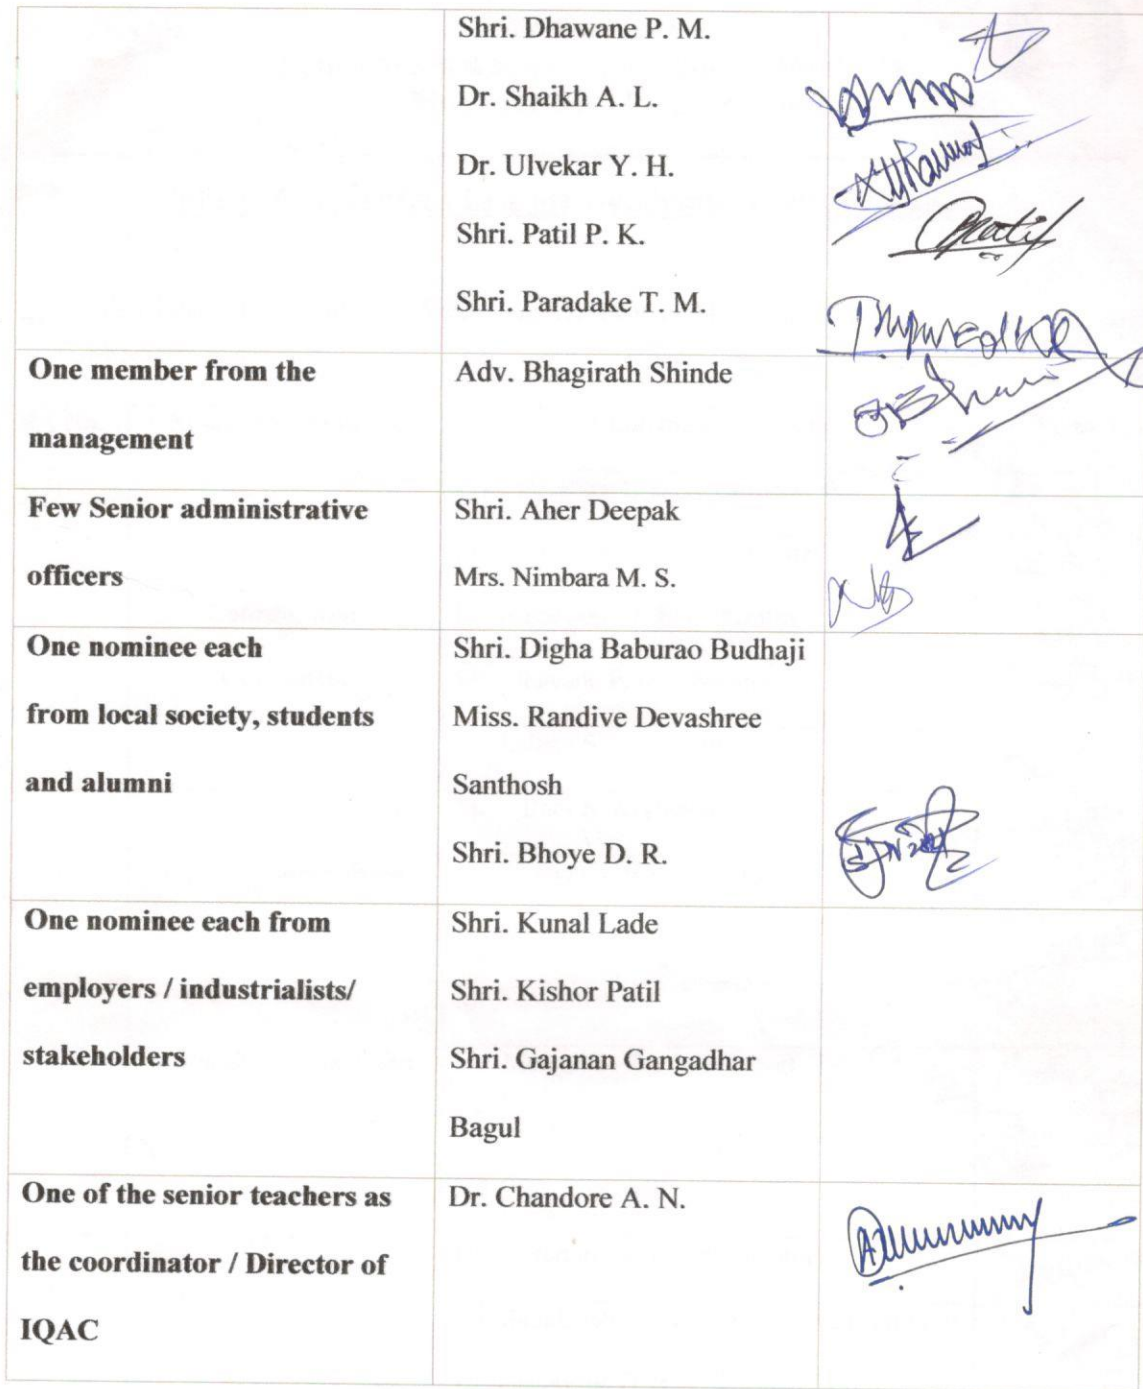 Shri. Dhawane P. M.
Dr. Shaikh A. L.
Dr. Ulvekar Y. H.
Shri. Patil P. K.
Shri. Paradake T. M.
One member from the
management
Adv. Bhagirath Shinde
Few Senior administrative
officers
Shri. Aher Deepak
Mrs. Nimbara M. S.
One nominee each
from local society, students
and alumni
Shri. Digha Baburao Budhaji
Miss. Randive Devashree
Santhosh
Shri. Bhoye D. R.
One nominee each from
employers / industrialists/
stakeholders
Shri. Kunal Lade
Shri. Kishor Patil
Shri. Gajanan Gangadhar
Bagul
One of the senior teachers as
the coordinator / Director of
IQAC
Dr. Chandore A. N.